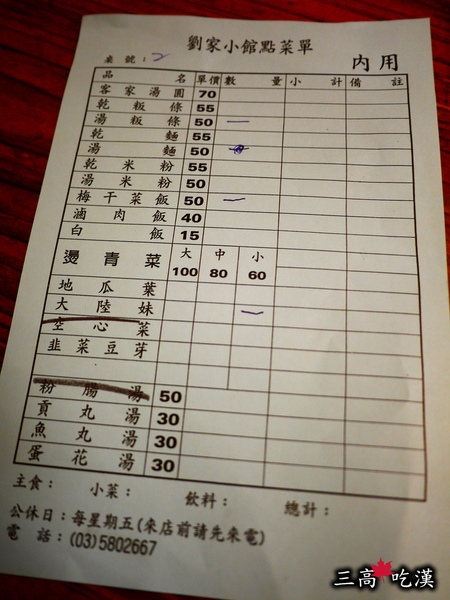 劉家小館點菜單
桌號：2 內用
品名 單價 數量 小計 備註
客家湯圓 70
乾粄條 55
湯粄條 50 一
乾麵 55
湯麵 50
乾米粉 55
湯米粉 50
梅干菜飯 50 一
滷肉飯 40
白飯 15
燙青菜 大100 中80 小60
地瓜葉
大陸妹 一
空心菜
韭菜豆芽
粉腸湯 50
貢丸湯 30
魚丸湯 30
蛋花湯 30
主食： 小菜： 飲料： 總計：
公休日：每星期五(來店前請先來電)
電話：(03)5802667
三高吃漢